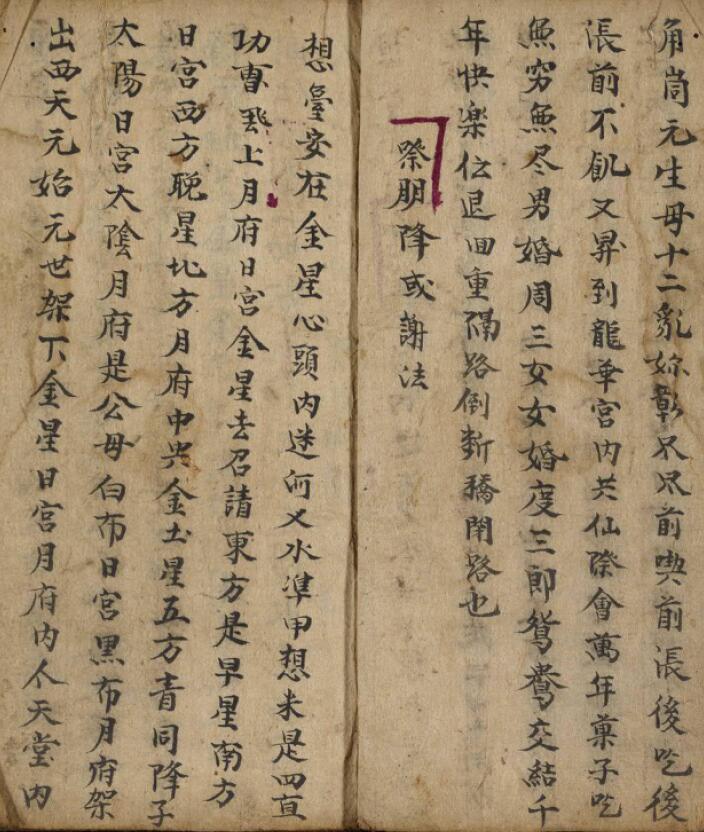 角崗元生母十二亂妳彰尺尺前喫前漲後吃後
漲前不飢又昇到龍華宮内共仙際會萬年菓子吃
無穷無尽男婚周三女女婚度三郎鴛鴦交結千
年快楽位退回重隔路倒斷橋閉路也
祭朋降或謝法
想臺安在金星心頭内迷河又水準甲想来是四直
功曹飛上月府日宮金星去召請東方是早星南方
日宮西方晚星北方月府中央金土星五方青同降子
太陽日宮太陰月府是公母白布日宮黒布月府架
出西天元始元世架下金星日宮月府内仌天堂内